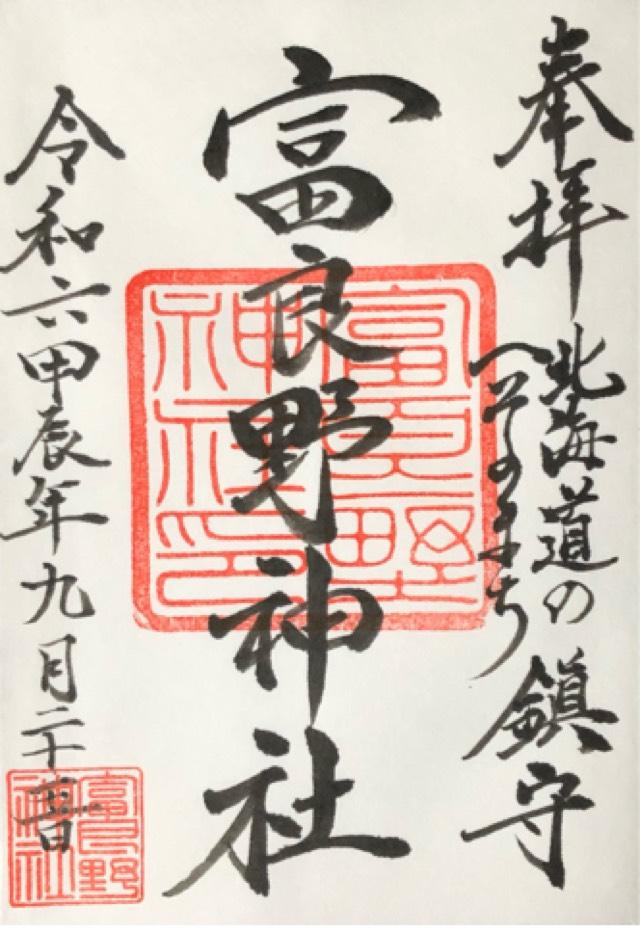 奉拝
北海道の
へそのまち
鎮守
富良野神社
富良野神社印
令和六甲辰年九月二十
富良野神社